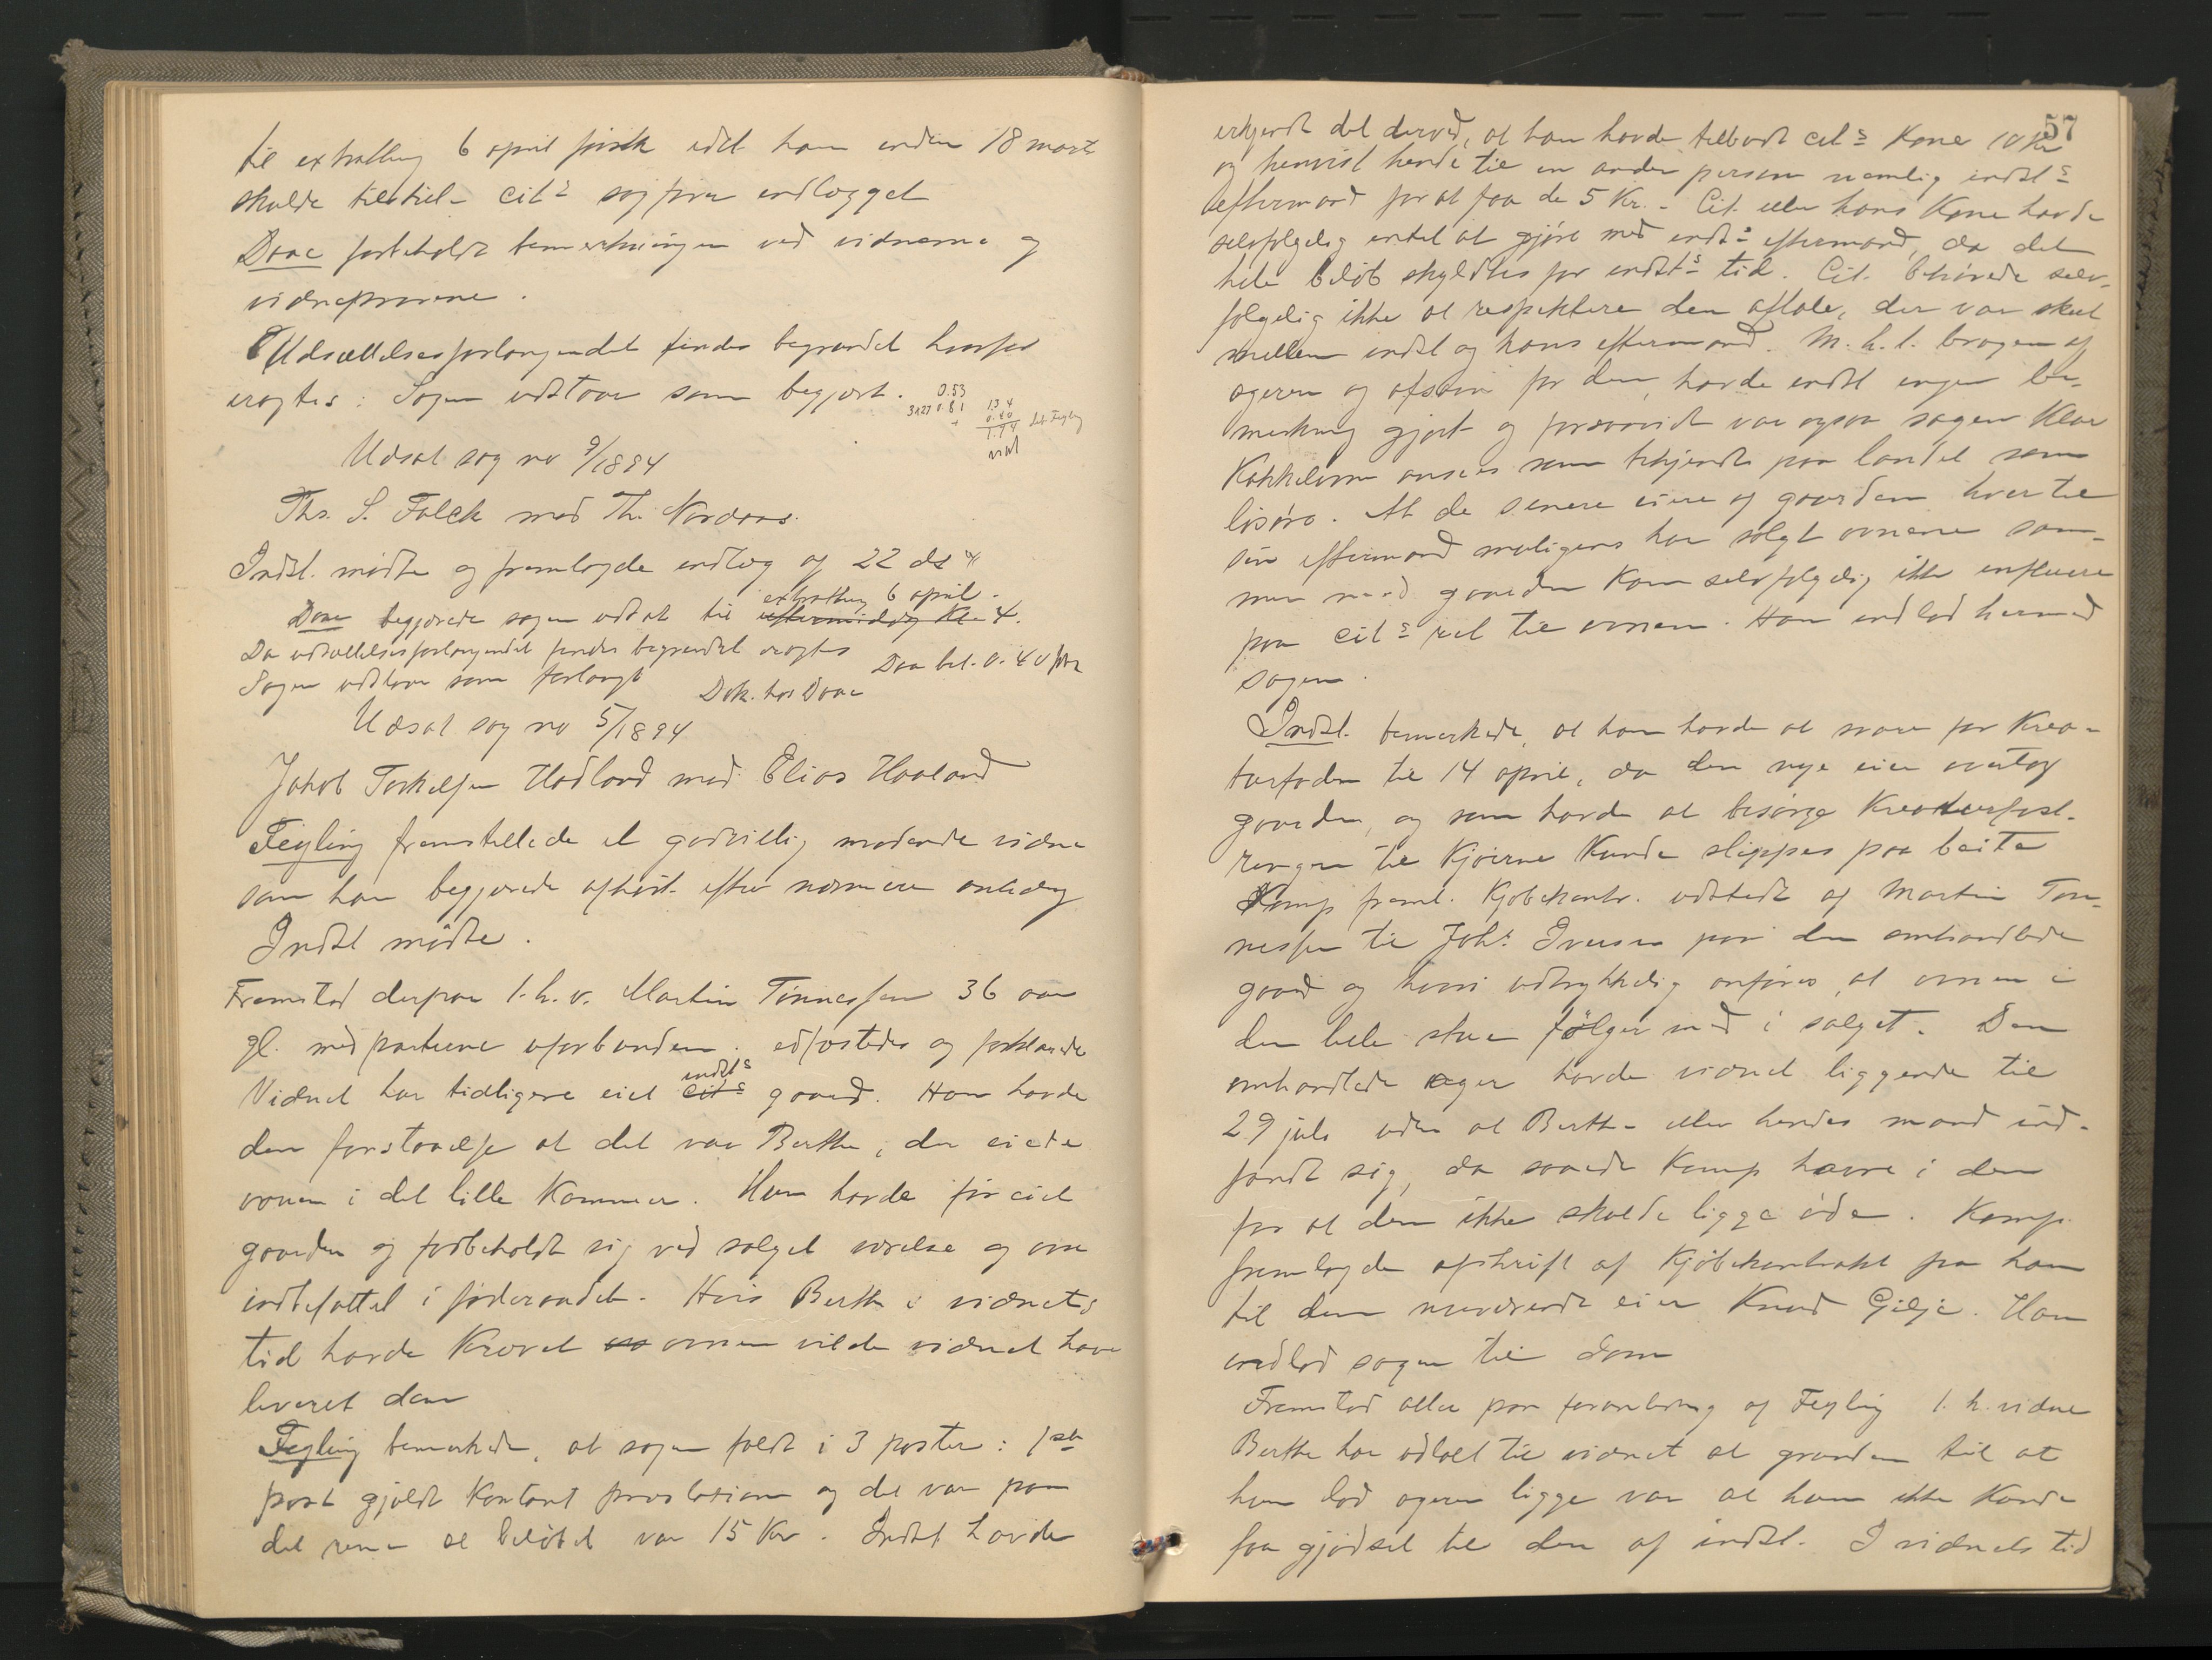 til extratting 6 april førstk idet han inden 18 marts
skulde tilstil- cit<sup>s</sup> sagfører indlægget
Daae forbeholdt bemerkninger ved vidnerne og
vidneprovene.
Udsættelsesforlangendet findes begrundet hvorfor
eragtes: Sagen udstaar som begjært.
0.53
3127 0.81
134
0.40
1.74
Udsat sag no 9/1894
Ths. S. Falck mod Th. Nordaas.
Indst. mødte og fremlagde indlæg af 22 ds
extratting 6 april.
Daae begjærede sagen udsat til eftermiddag Kl. 4.
Da udsættelsesforlangendet findes begrundet eragtes
Sagen udstaar som forlangt
Daa bet. 0.40 for
Dok. hos Daae
Udsat sag no 5/1894
Jakob Torkelsen Hodland mod Elias Haaland
Feyling fremstillede et godvillig mødende vidne
som han begjærede afhørt efter nærmere anledng
Indst mødte.
Fremstod derpaa 1. h. v. Martin Tønnessen 36 aar
gl. med parterne uforbunden. edfæstedes og forklarede
indst<sup>s</sup>
Vidnet har tidligere eiet cit<sup>s</sup> gaard. Han havde
den forstaaelse at det var Berthe, der eiede
ovnen i det lille Kammer. Hun havde før eiet
gaarden og forbeholdt sig ved salget værelse og ovn
indbefattet i føderaadet. Hvis Berthe i vidnets
tid havde Krævet ovnen vilde vidnet have
leveret den
Feyling bemerkede, at sagen faldt i 3 poster: 1<sup>ste</sup>
post gjaldt Kontant præstation og det var paa
det rene at beløbet var 15 Kr. Indst havde
57
erkjendt det derved, at han havde tilbudt cit<sup>s</sup> Kone 10 Kr
og henvist hende til en anden person nemlig indst<sup>s</sup>
eftermand for at faa de 5 Kr. - Cit. eller hans Kone havde
selvfølgelig intet at gjøre med indst<sup>s</sup> eftermand, da det
hele beløb skyldtes for indst<sup>s</sup> tid. Cit. behøvede selv-
følgelig ikke at respektere den aftale, der var skeet
mellem indst og hans eftermand. M. h. t. brugen af
ageren og afsavn for den, havde indst ingen be-
merkning gjort og forsaavidt var ogsaa sagen Klar
Kakkelovne ansees som bekjendt paa landet som
løsøre. At de senere eiere af gaarden hver til
sin eftermand muligens har solgt ovnene sam-
men med gaarden Kan selvfølgelig ikke influere
paa cit<sup>s</sup> ret til ovnen. Han indlod hermed
sagen.
Indst. bemerkede, at han havde at svare for Krea-
turfoden til 14 april, da den nye eier overtog
gaarden, og som havde at besørge Kreaturfost-
ringen til Kjøerne Kunde slippes paa beite
Kamp freml. Kjøbekontr. udstedt af Martin Tøn-
nessen til Joh<sup>s</sup> Iversen paa den omhandlede
gaard og hvori udtrykkelig anføres, at ovnen i
den hele stue følger med i salget. Den
omhandlede ager havde vidnet liggende til
29 juli uden at Berthe eller hendes mand ind-
fandt sig, da saaede Kamp havre i den
for at den ikke skulde ligge øde. Kamp
fremlagde afskrift af Kjøbekontrakt fra ham
til den nuværende eier Knud Gilje. Han
indlod sagen til dom
Fremstod atter paa foranledng af Feyling 1. h. vidne
Berthe har udtalt til vidnet at grunden til at
hun lod ageren ligge var at hun ikke Kunde
faa gjødsel til den af indst. I vidnets tid